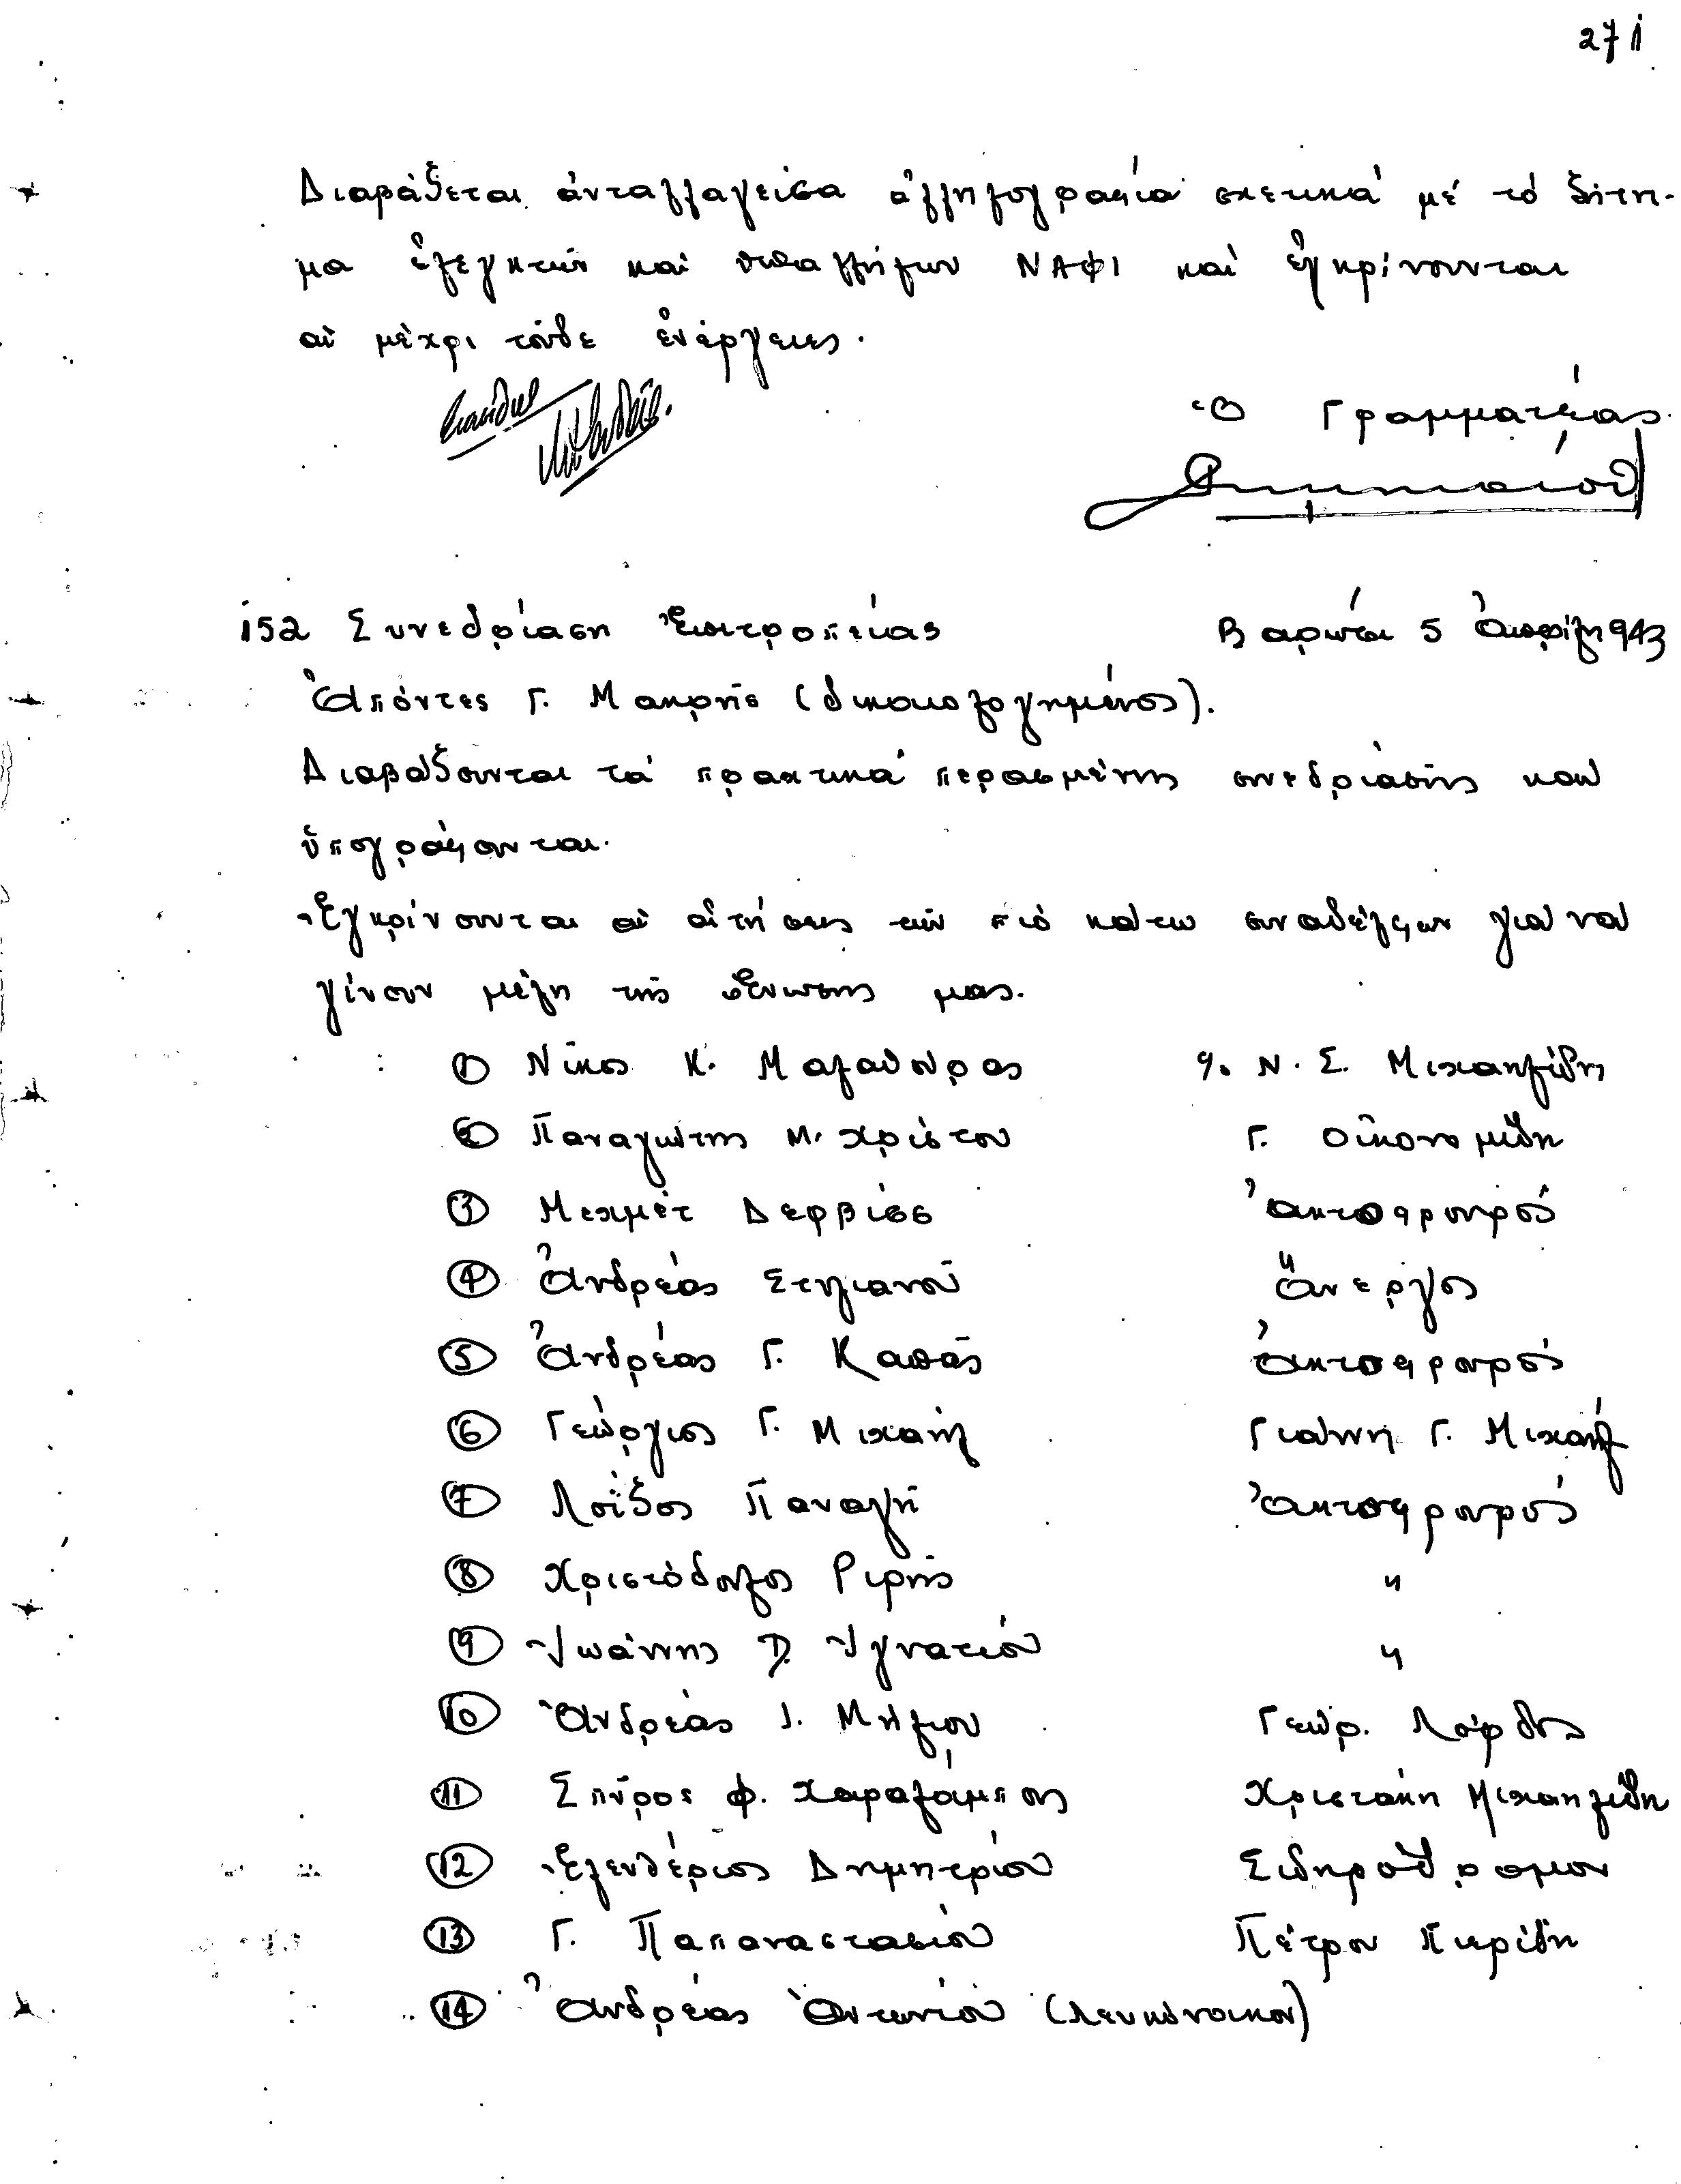 271
Διαβάζεται ἀνταλλαγεῖσα ἀλληλογραφία σχετικά μέ τό ζήτη-
μα ἐλεγκτῶν καί ὑπαλλήλων ΝΑΦΙ καί ἐγκρίνουνται
αἱ μέχρι τοῦδε ἐνέργειες.
Ὁ Γραμματέας
152 Συνεδρίαση Ἐπιτροπείας Βαρώσι 5 Ἀπρίλη 943
Ἀπόντες Γ. Μακρῆς (δικαιολογημένος).
Διαβάζουνται τά πρακτικά περασμένης συνεδρίασης καί
ὑπογράφονται.
Ἐγκρίνουνται αἱ αἰτήσεις τῶν πιό κάτω συναδέλφων γιά νά
γίνουν μέλη τῆς Ἕνωσης μας.
① Νῖκος Κ. Μαλαούρας % Ν. Σ. Μιχαηλίδη
② Παναγιώτης Μ. Χρίστου Γ. Οἰκονομίδη
③ Μεχμέτ Δερβίςς Ἀκτοφρουρός
④ Ἀνδρέας Στυλιανοῦ Ἄνεργος
⑤ Ἀνδρέας Γ. Καπᾶς Ἀκτοφρουρός
⑥ Γεώργιος Γ. Μιχαήλ Γιάννη Γ. Μιχαήλ
⑦ Λοΐζος Παναγῆ Ἀκτοφρουρός
⑧ Χριστόδουλος Ριρῆς "
⑨ Ἰωάννης Δ. Ἰγνατίου "
⑩ Ἀνδρέας Ι. Μήλιου Γεώρ. Λόρδος
⑪ Σπῦρος Φ. Χαραλάμπους Χριστάκη Μιχαηλίδη
⑫ Ἐλευθέριος Δημητρίου Σιδηροδρόμου
⑬ Γ. Παπαναστασίου Πέτρου Πιερίδη
⑭ Ἀνδρέας Ἀντωνίου (Λευκόνοικον)